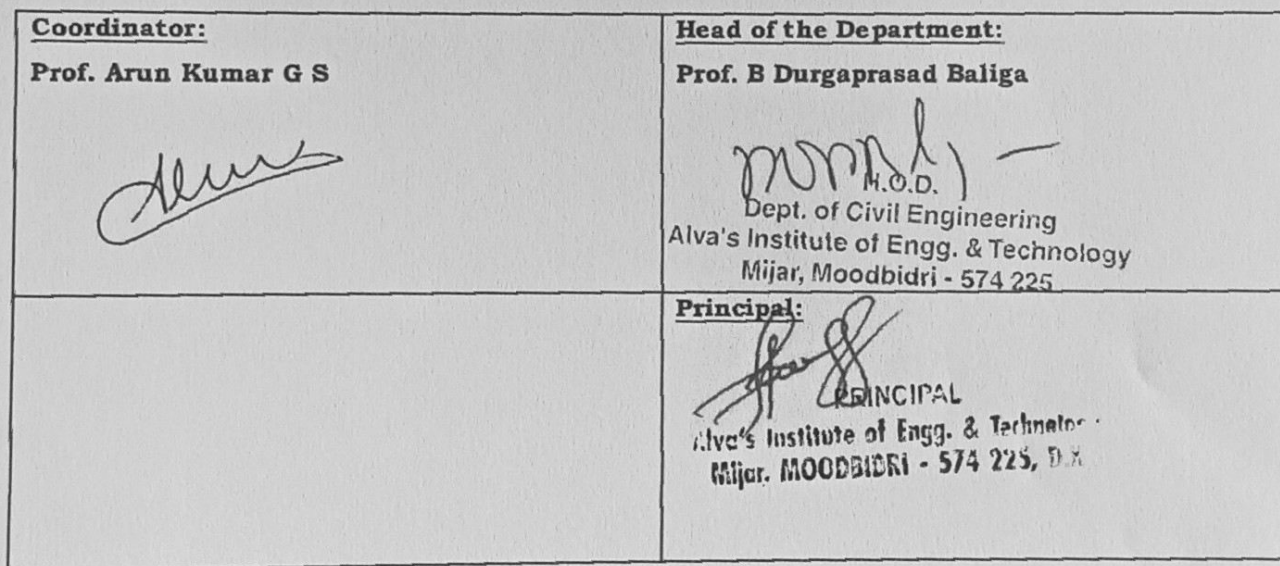 Coordinator:
Prof. Arun Kumar G S
Head of the Department:
Prof. B Durgaprasad Baliga
H.O.D.
Dept. of Civil Engineering
Alva's Institute of Engg. & Technology
Mijar, Moodbidri - 574 225
Principal:
PRINCIPAL
Alva's Institute of Engg. & Technolo
Mijar. MOODBIDRI - 574 225, D.K